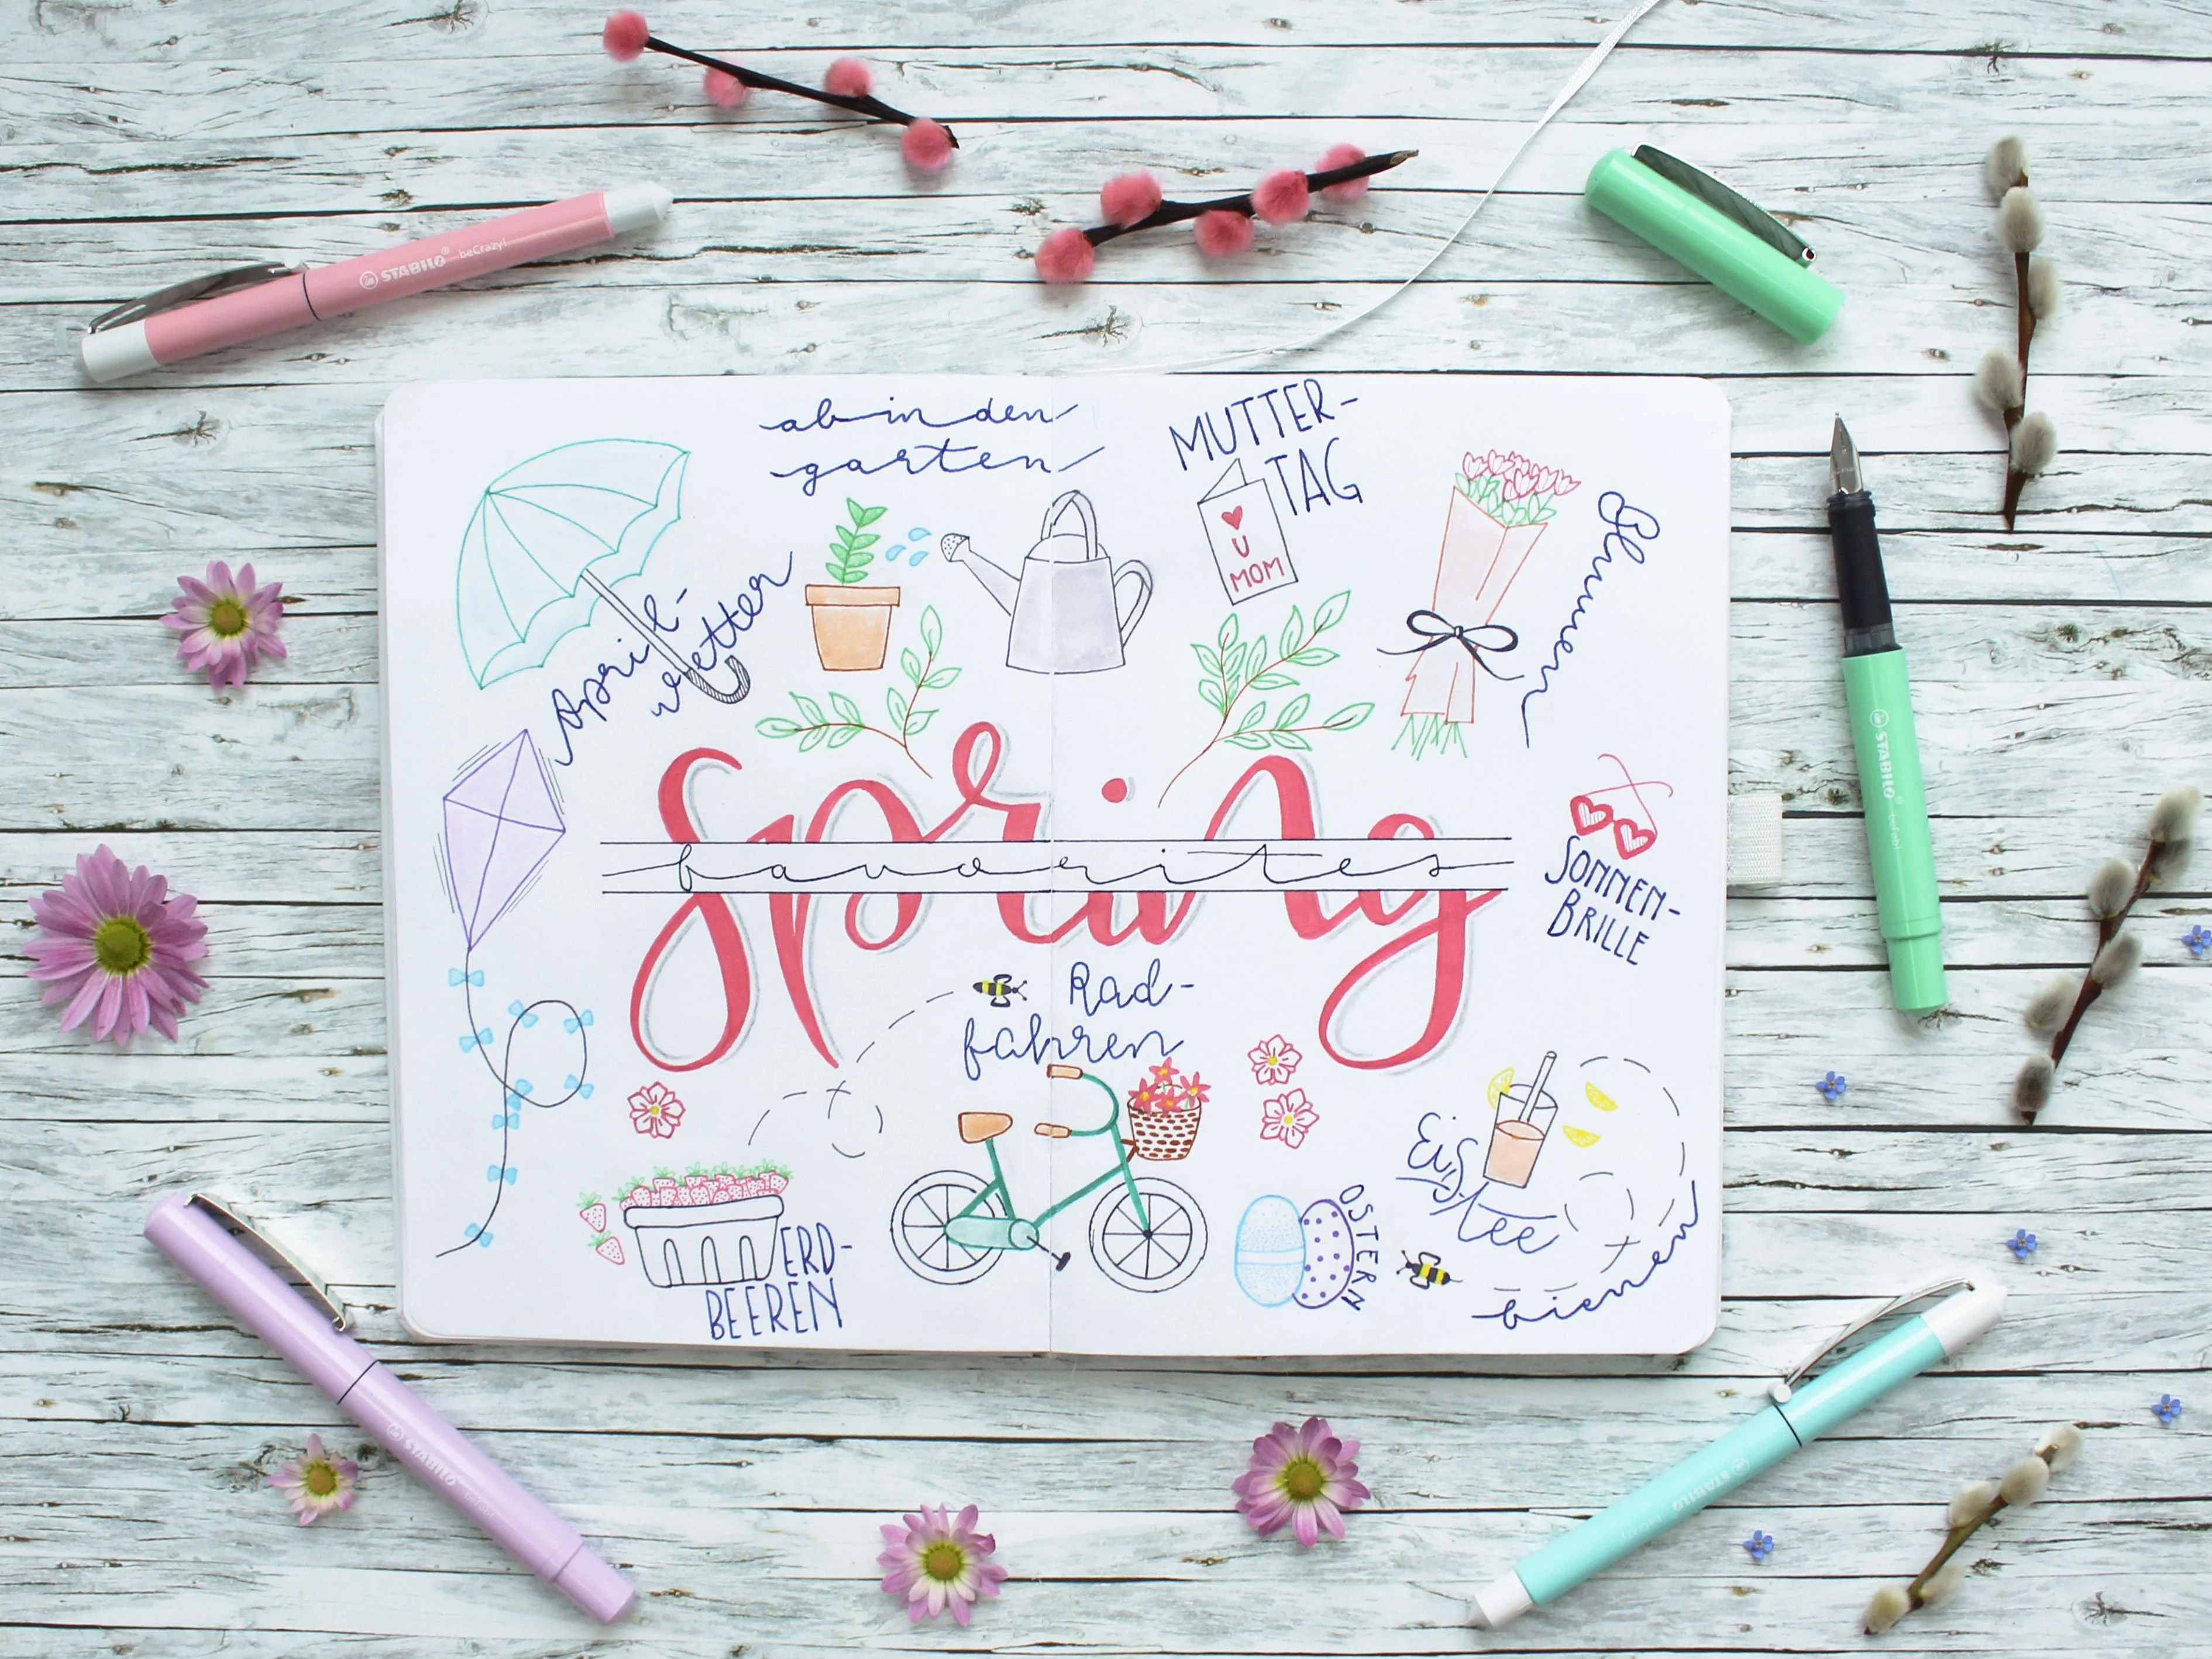 STABILO beCrazy!
ab in den
garten
MUTTER-
TAG
♥
U
MOM
Blumen
April-
wetter
STABILO
Spring
favorites
SONNEN-
BRILLE
Rad-
fahren
Eis-
tee
OSTERN
ERD-
BEEREN
bienen
STABILO
STABILO